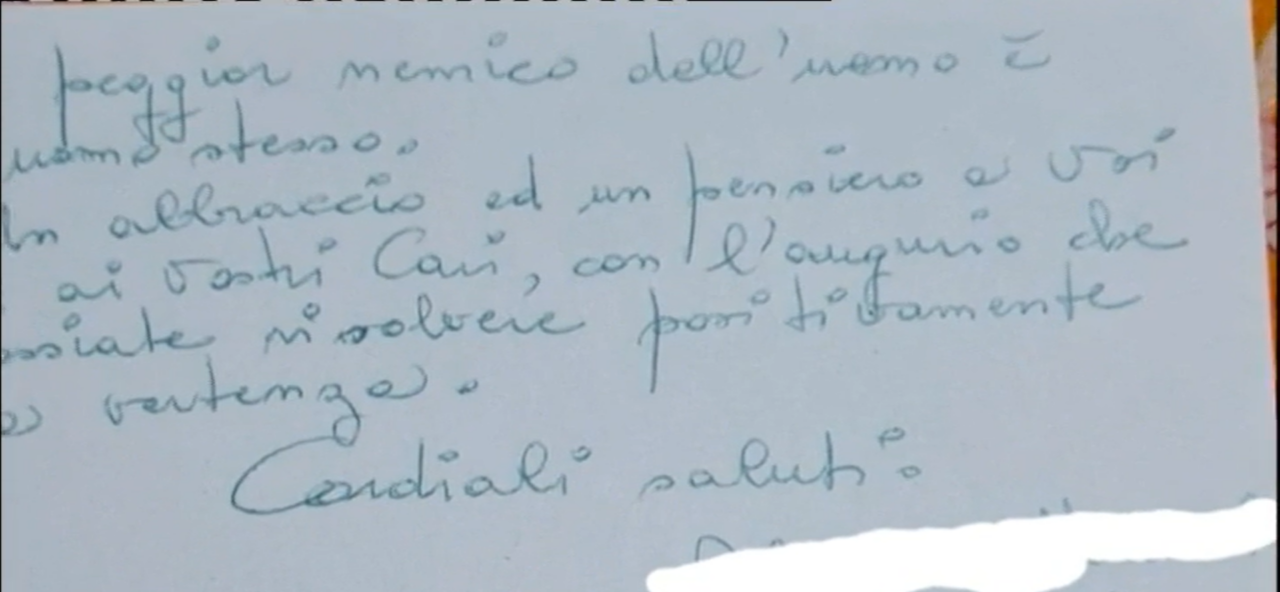 peggior nemico dell'uomo è
uomo stesso.
Un abbraccio ed un pensiero a voi
ai vostri Cari, con l'augurio che
ossiate risolvere positivamente
a vertenza.
Cordiali saluti.